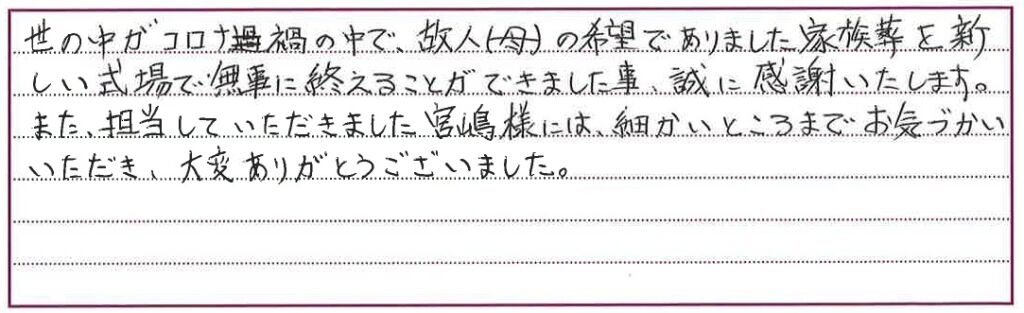 世の中がコロナ禍の中で、故人(母)の希望でありました家族葬を新
しい式場で無事に終えることができました事、誠に感謝いたします。
また、担当していただきました宮嶋様には、細かいところまでお気づかい
いただき、大変ありがとうございました。